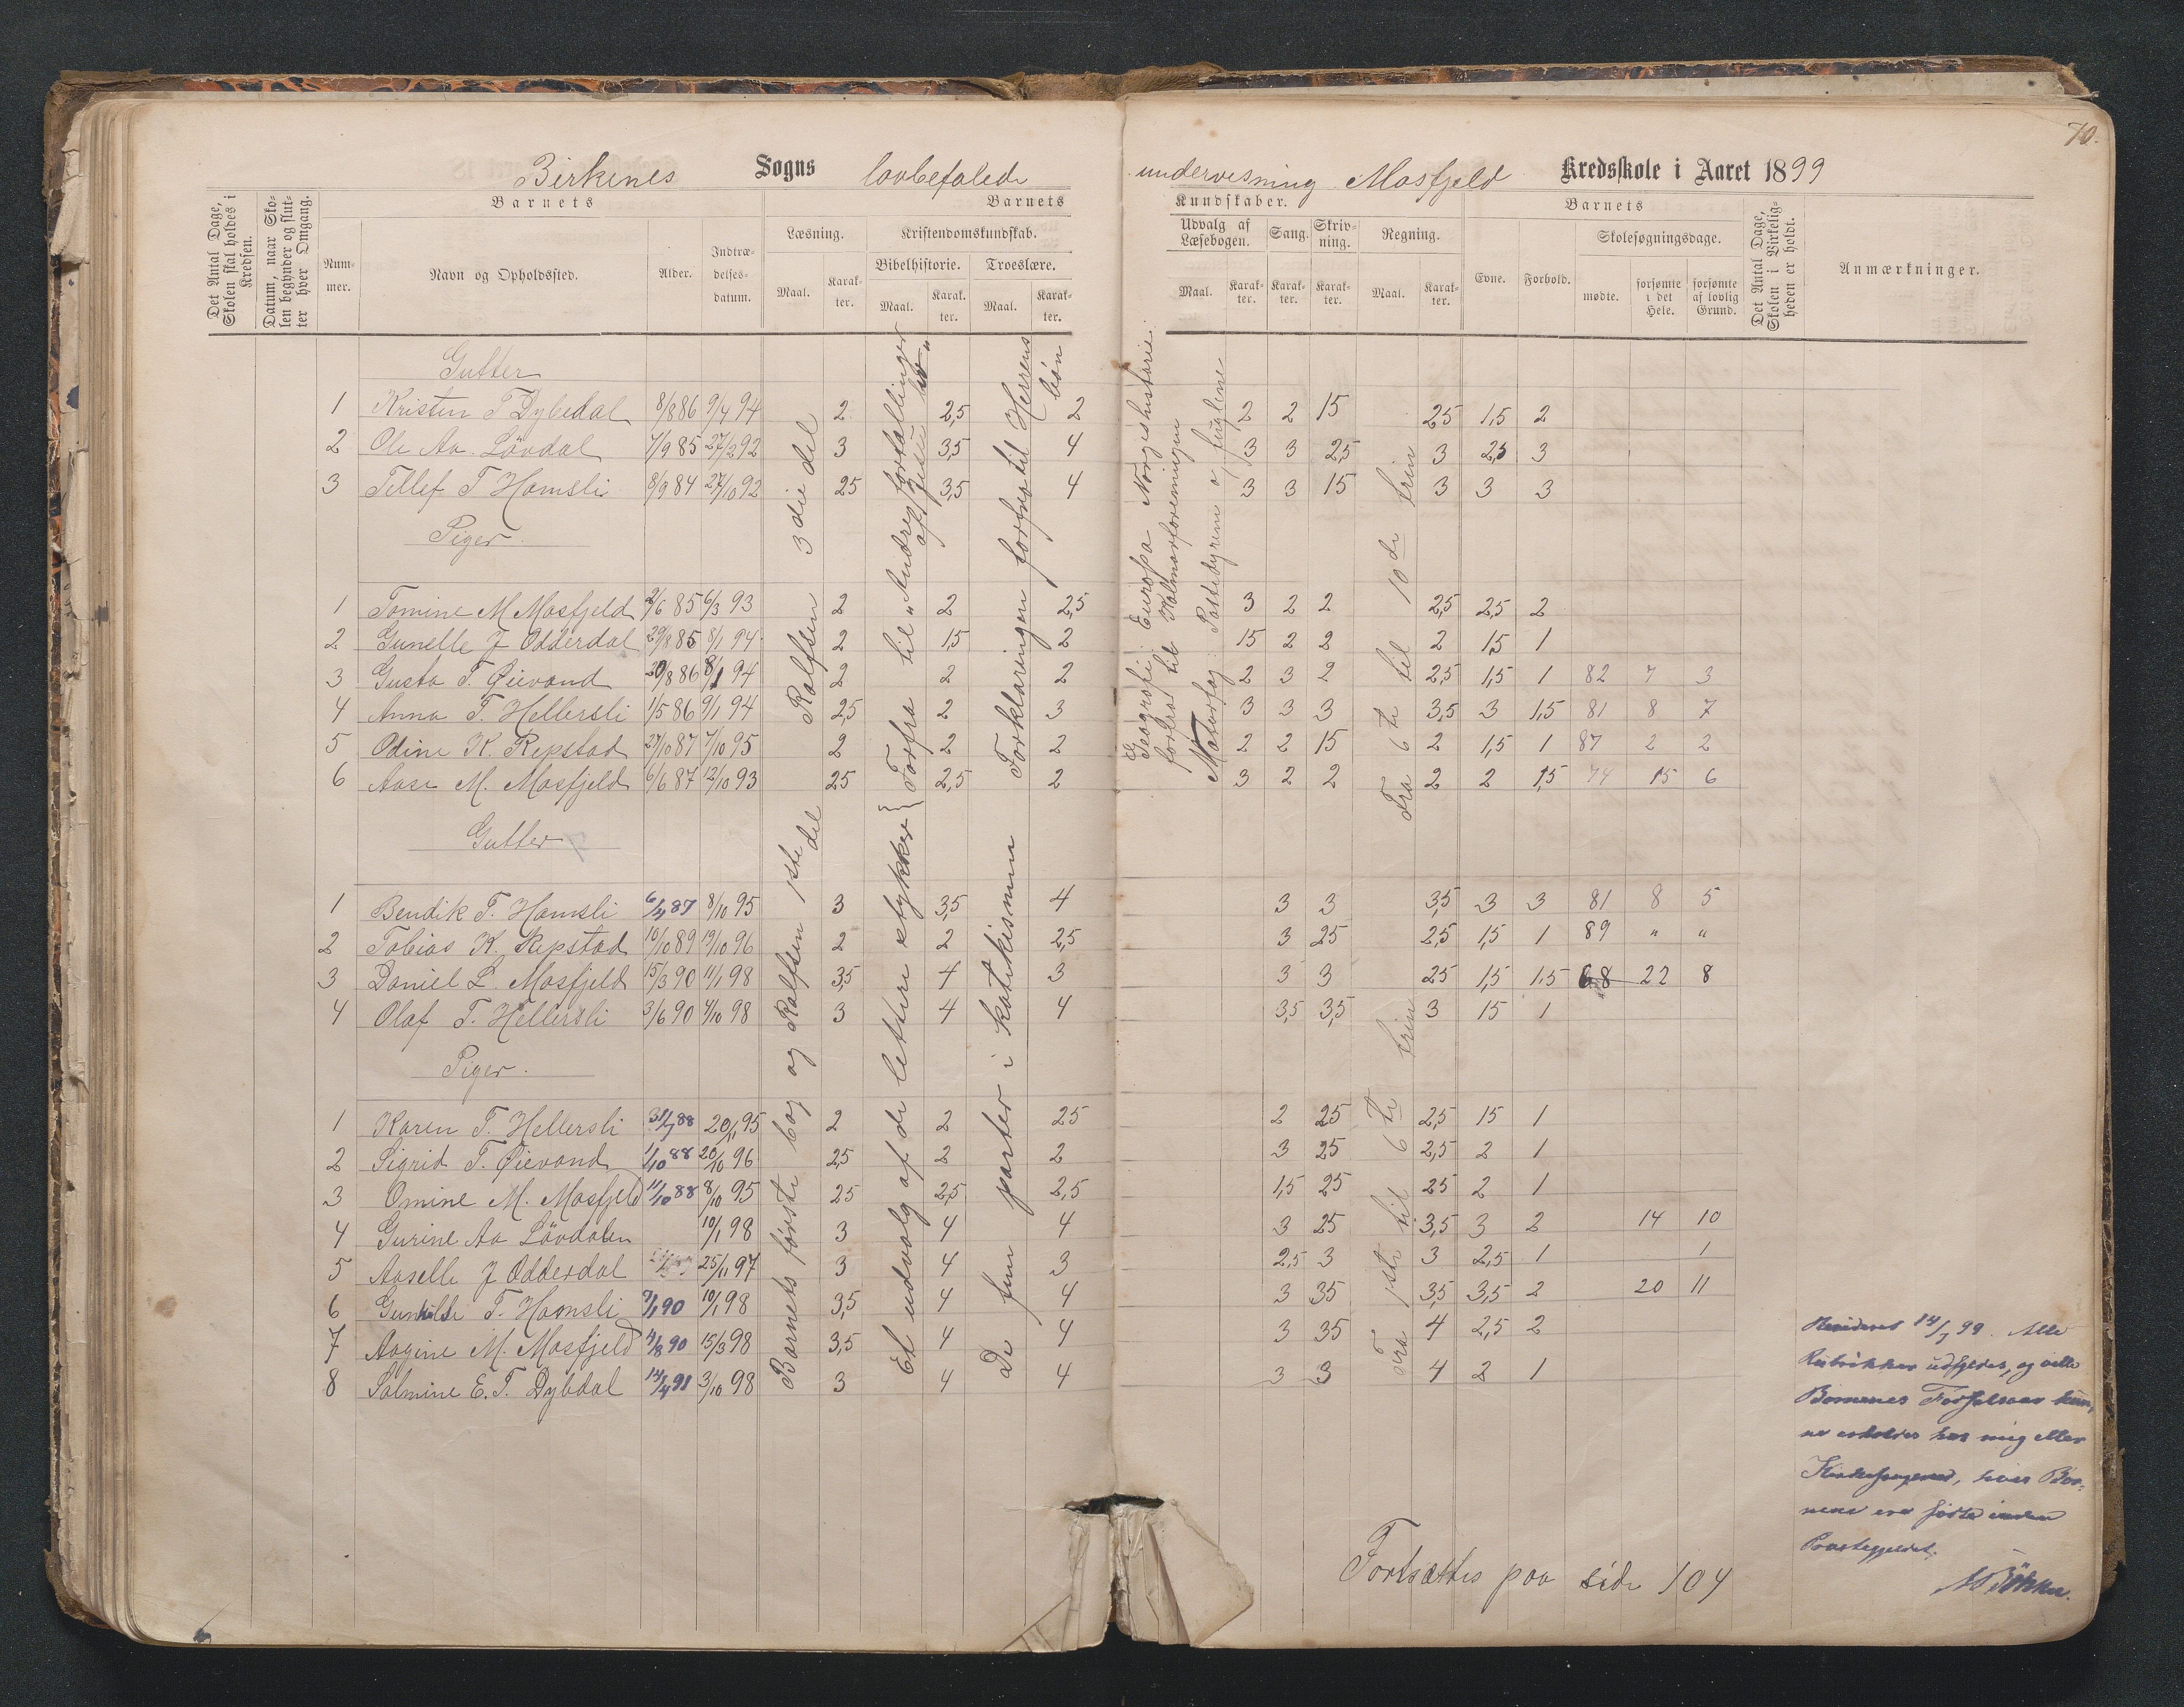 70.
Birkenes Sogns lovbefalede undervisning Mosfjeld Kredsskole i Aaret 1899
Det Antal Dage, Skolen skal holdes i Kredsen.
Datum, naar Skolen begynder og slutter hver Omgang.
Barnets
Nummer.
Navn og Opholdssted.
Alder.
Indtrædelsesdatum.
Barnets
Læsning.
Maal.
Karakter.
Kristendomskundskab.
Bibelhistorie.
Maal.
Karakter.
Troeslære.
Maal.
Karakter.
Kundskaber.
Udvalg af Læsebogen.
Maal.
Karakter.
Sang.
Karakter.
Skrivning.
Karakter.
Regning.
Maal.
Karakter.
Barnets
Evne.
Forhold.
Skolesøgningsdage.
mødte.
forsømte i det Hele.
forsømte af lovlig Grund.
Det Antal Dage, Skolen i Virkeligheden er holdt.
Anmærkninger.
Gutter
1 Kristen T Dybedal 8/8 86 9/4 94 2 2,5 2 2 2 15 25 1,5 2
2 Ole Aa. Lövdal 7/9 85 27/2 92 3 3,5 4 3 3 2,5 3 2,5 3
3 Tellef T Hamsli 8/9 84 27/10 92 25 3,5 4 3 3 15 3 3 3
Piger.
1 Tomine M Mosfjeld 2/6 85 6/3 93 2 2 2,5 3 2 2 2,5 2,5 2
2 Gunelle J Odderdal 29/8 85 8/1 94 2 1,5 2 15 2 2 2 1,5 1
3 Gusta T. Øievand 20/8 86 8/1 94 2 2 2 2 3 2 2,5 1,5 1 82 7 3
4 Anna T. Hellersli 1/5 86 9/1 94 2,5 2 3 3 3 3 3,5 3 1,5 81 8 7
5 Odine K. Repstad 27/10 87 7/10 95 2 2 2 2 2 15 2 1,5 1 87 2 2
6 Aase M. Mosfjeld 6/6 87 12/10 93 25 2,5 2 3 2 2 2 2 1,5 74 15 6
Gutter
1 Bendik T. Hamsli 6/4 87 8/10 95 3 3,5 4 3 3 3,5 3 3 81 8 5
2 Tobias K. Repstad 10/10 89 19/10 96 2 2 2,5 3 25 2,5 1,5 1 89 " "
3 Daniel L. Mosfjeld 15/3 90 11/1 98 3,5 4 3 3 3 25 1,5 1.5 68 22 8
4 Olaf T. Hellersli 3/6 90 4/10 98 3 4 4 3,5 3,5 3 15 1
Piger.
1 Karen T. Hellersli 31/7 88 20/1 95 2 2 25 2 25 2,5 15 1
2 Sigrid T. Øievand 1/10 88 20/10 96 2,5 2 2 3 25 2,5 2 1
3 Omine M. Mosfjeld 11/10 88 8/10 95 25 2,5 2,5 1,5 25 25 2 1
4 Gurine Aa Lövdalen 10/1 98 3 4 4 3 25 3,5 3 2 14 10
5 Aaselle J Odderdal 25/11 97 3 4 3 2,5 3 3 2,5 1 1
6 Gunhilde T. Hamsli 9/1 90 10/1 98 3,5 4 4 3 35 3,5 3,5 2 20 11
7 Aagine M. Mosfjeld 4/8 90 15/3 98 3,5 4 4 3 35 4 2,5 2
8 Salmine E. T. Dybdal 14/4 91 3/10 98 3 4 4 3 3 4 2 1
Rolfsen 3die del
Barnets første bog og Rolfsen 1ste del
Forfra til "Andre fortællinger af Jesu liv"
Et udvalg af de lettere stykker
Forklaringen forfra til Herrens bön
De fem parter i katekismen
Geografi: Europa Norgeshistorie: forfra til Kalmarforeningen
Naturfag: Pattedyrene og fuglene
Fra 6te til 10de trin
Fra 1ste til 6te trin
Revideret 14/7 99. Alle
Rubrikker udfyldes, og ville
Børnenes Fødselsaar kun,
ne erholdes hos mig eller
Kirkesangeren, hvis Bør-
nene ere fødte inden
Præstegjeldet.
Fortsættes paa side 104